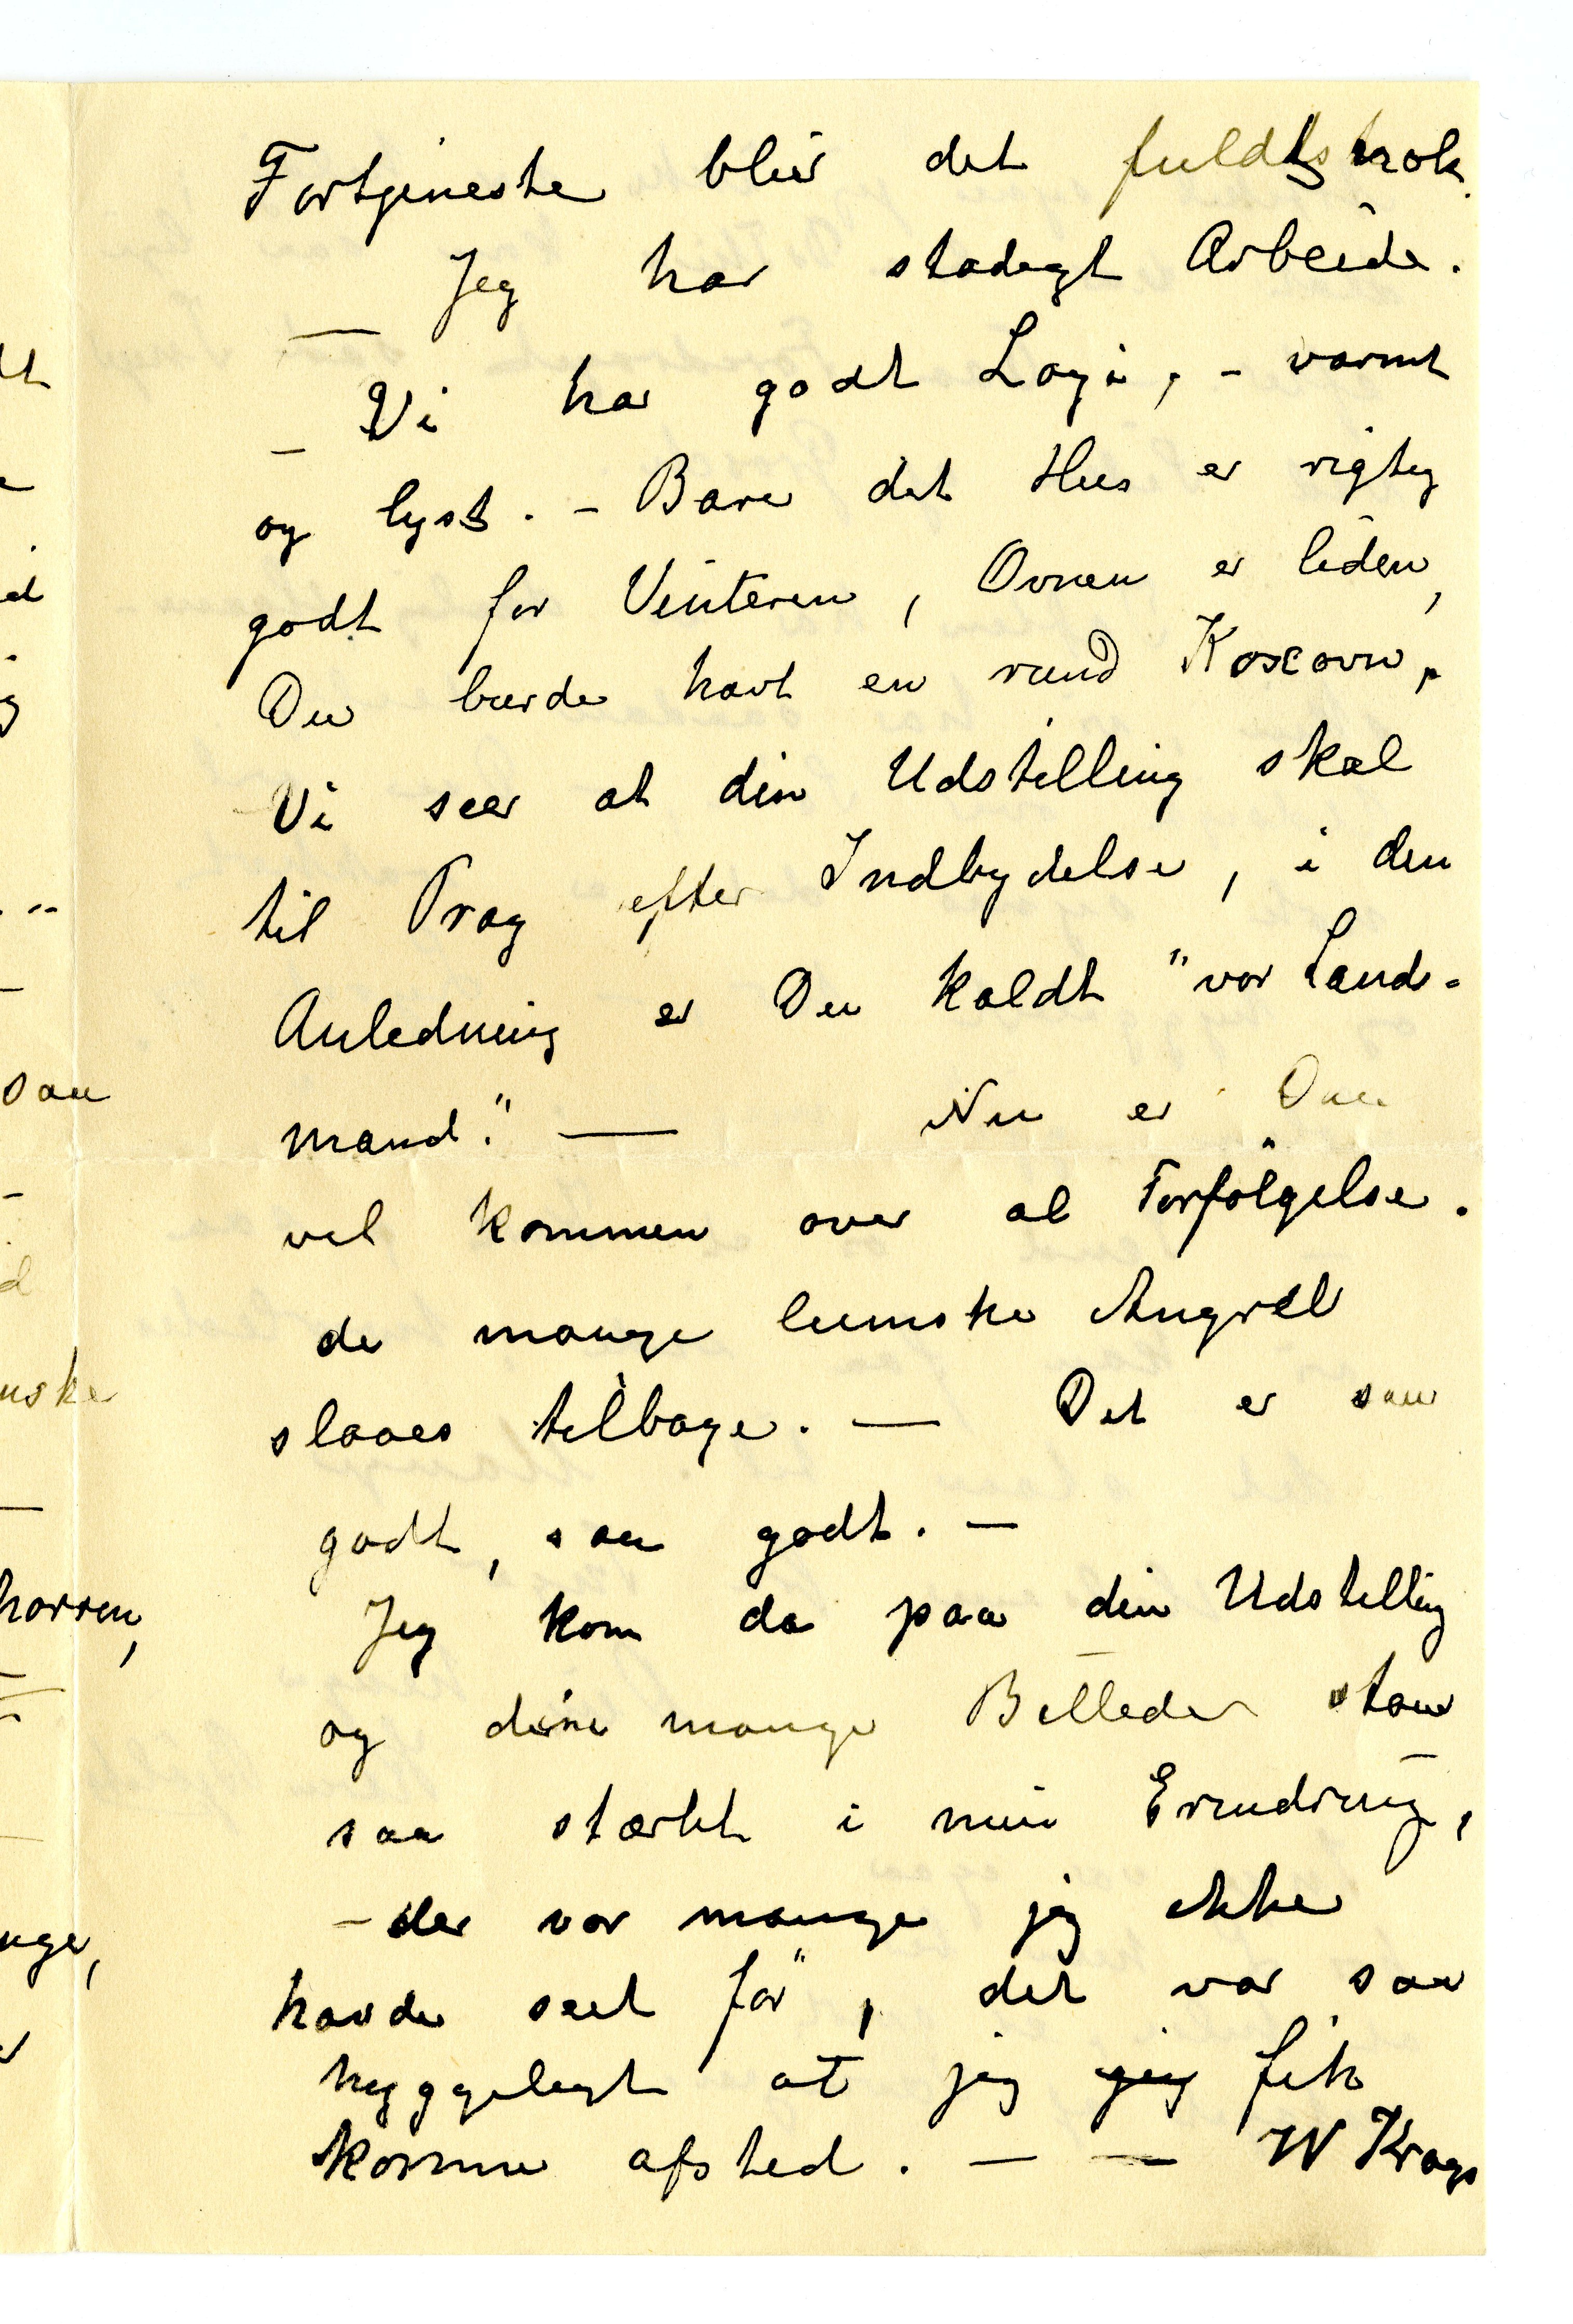 Fortjeneste blir det fuldts nok.
Jeg har stadigt Arbeide.
— Vi har godt Logi, – varmt
og lyst. – Bare dit Hus er rigtig
godt for Vinteren, Ovnen er liden,
Du burde havt en rund Koxovn,
Vi seer at din Udstilling skal
til Prag efter Indbydelse, i den
Anledning er Du kaldt "vor Lands-
mand". — Nu er Du
vel kommen over al Forfölgelse.
de mange lumske Angreb
slaaes tilbage. — Det er saa
godt, saa godt. —
Jeg kom da paa din Udstilling
og dine mange Billeder staar
saa stærkt i min Erindring,
– der var mange jeg ikke
havde seet för, det var saa
hyggeligt at jeg jeg fik
komme afsted. — — W Krags
saa
nske